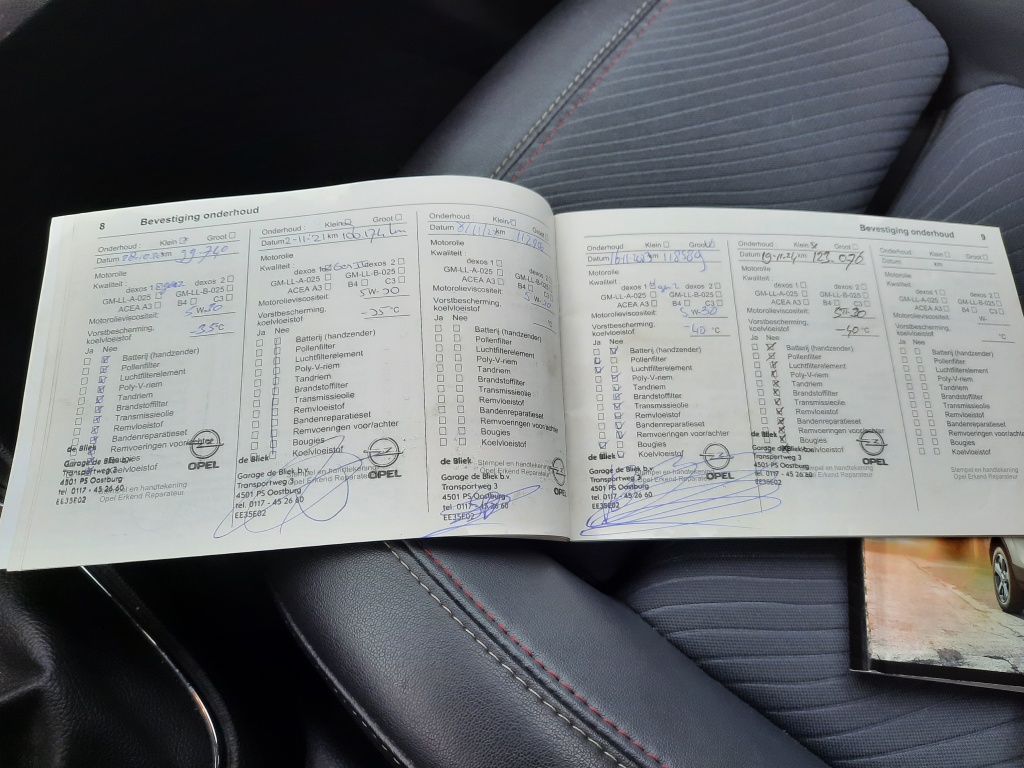 8 Bevestiging onderhoud
Onderhoud : Klein Groot
Datum km 39.740
Motorolie
Kwaliteit
dexos 1 dexos 2
GM-LL-A-025 GM-LL-B-025
ACEA A3 B4 C3
Motorolieviscositeit: 5W30
Vorstbescherming,
koelvloeistof -35°C
Ja Nee
Batterij (handzender)
Pollenfilter
Luchtfilterelement
Poly-V-riem
Tandriem
Brandstoffilter
Transmissieolie
Remvloeistof
Bandenreparatieset
Remvoeringen voor/achter
Bougies
Koelvloeistof
de Bliek
Garage de Bliek b.v.
Transportweg 3
4501 PS Oostburg
tel. 0117 - 45 26 60
EE35E02
OPEL
Onderhoud : Klein Groot
Datum 2-11-21 km 100.174 km
Motorolie
Kwaliteit
dexos 1 dexos 2
GM-LL-A-025 GM-LL-B-025
ACEA A3 B4 C3
Motorolieviscositeit: 5W-30
Vorstbescherming,
koelvloeistof °C
Ja Nee
Batterij (handzender)
Pollenfilter
Luchtfilterelement
Poly-V-riem
Tandriem
Brandstoffilter
Transmissieolie
Remvloeistof
Bandenreparatieset
Remvoeringen voor/achter
Bougies
Koelvloeistof
de Bliek
Stempel en handtekening
Opel Erkend Reparateur
Garage de Bliek b.v.
Transportweg 3
4501 PS Oostburg
tel. 0117 - 45 26 60
EE35E02
OPEL
Onderhoud : Klein Groot
Datum km
Motorolie
Kwaliteit
dexos 1 dexos 2
GM-LL-A-025 GM-LL-B-025
ACEA A3 B4 C3
Motorolieviscositeit:
Vorstbescherming,
koelvloeistof °C
Ja Nee
Batterij (handzender)
Pollenfilter
Luchtfilterelement
Poly-V-riem
Tandriem
Brandstoffilter
Transmissieolie
Remvloeistof
Bandenreparatieset
Remvoeringen voor/achter
Bougies
Koelvloeistof
de Bliek
Stempel en handtekening
Opel Erkend Reparateur
Garage de Bliek b.v.
Transportweg 3
4501 PS Oostburg
tel. 0117 - 45 26 60
EE35E02
OPEL
Bevestiging onderhoud 9
Onderhoud : Klein Groot
Datum 16-11-2023 km 118589
Motorolie
Kwaliteit
dexos 1 dexos 2
GM-LL-A-025 GM-LL-B-025
ACEA A3 B4 C3
Motorolieviscositeit: 5W-30
Vorstbescherming,
koelvloeistof -40 °C
Ja Nee
Batterij (handzender)
Pollenfilter
Luchtfilterelement
Poly-V-riem
Tandriem
Brandstoffilter
Transmissieolie
Remvloeistof
Bandenreparatieset
Remvoeringen voor/achter
Bougies
Koelvloeistof
de Bliek
Stempel en handtekening
Opel Erkend Reparateur
Garage de Bliek b.v.
Transportweg 3
4501 PS Oostburg
tel. 0117 - 45 26 60
EE35E02
OPEL
Onderhoud : Klein Groot
Datum 19-11-24 km 123.076
Motorolie
Kwaliteit
dexos 1 dexos 2
GM-LL-A-025 GM-LL-B-025
ACEA A3 B4 C3
Motorolieviscositeit: 5W-30
Vorstbescherming,
koelvloeistof -40 °C
Ja Nee
Batterij (handzender)
Pollenfilter
Luchtfilterelement
Poly-V-riem
Tandriem
Brandstoffilter
Transmissieolie
Remvloeistof
Bandenreparatieset
Remvoeringen voor/achter
Bougies
Koelvloeistof
de Bliek
Stempel en handtekening
Opel Erkend Reparateur
Garage de Bliek b.v.
Transportweg 3
4501 PS Oostburg
tel. 0117 - 45 26 60
EE35E02
OPEL
Onderhoud : Klein Groot
Datum km
Motorolie
Kwaliteit
dexos 1 dexos 2
GM-LL-A-025 GM-LL-B-025
ACEA A3 B4 C3
Motorolieviscositeit:
W-
Vorstbescherming,
koelvloeistof °C
Ja Nee
Batterij (handzender)
Pollenfilter
Luchtfilterelement
Poly-V-riem
Tandriem
Brandstoffilter
Transmissieolie
Remvloeistof
Bandenreparatieset
Remvoeringen voor/achter
Bougies
Koelvloeistof
Stempel en handtekening
Opel Erkend Reparateur